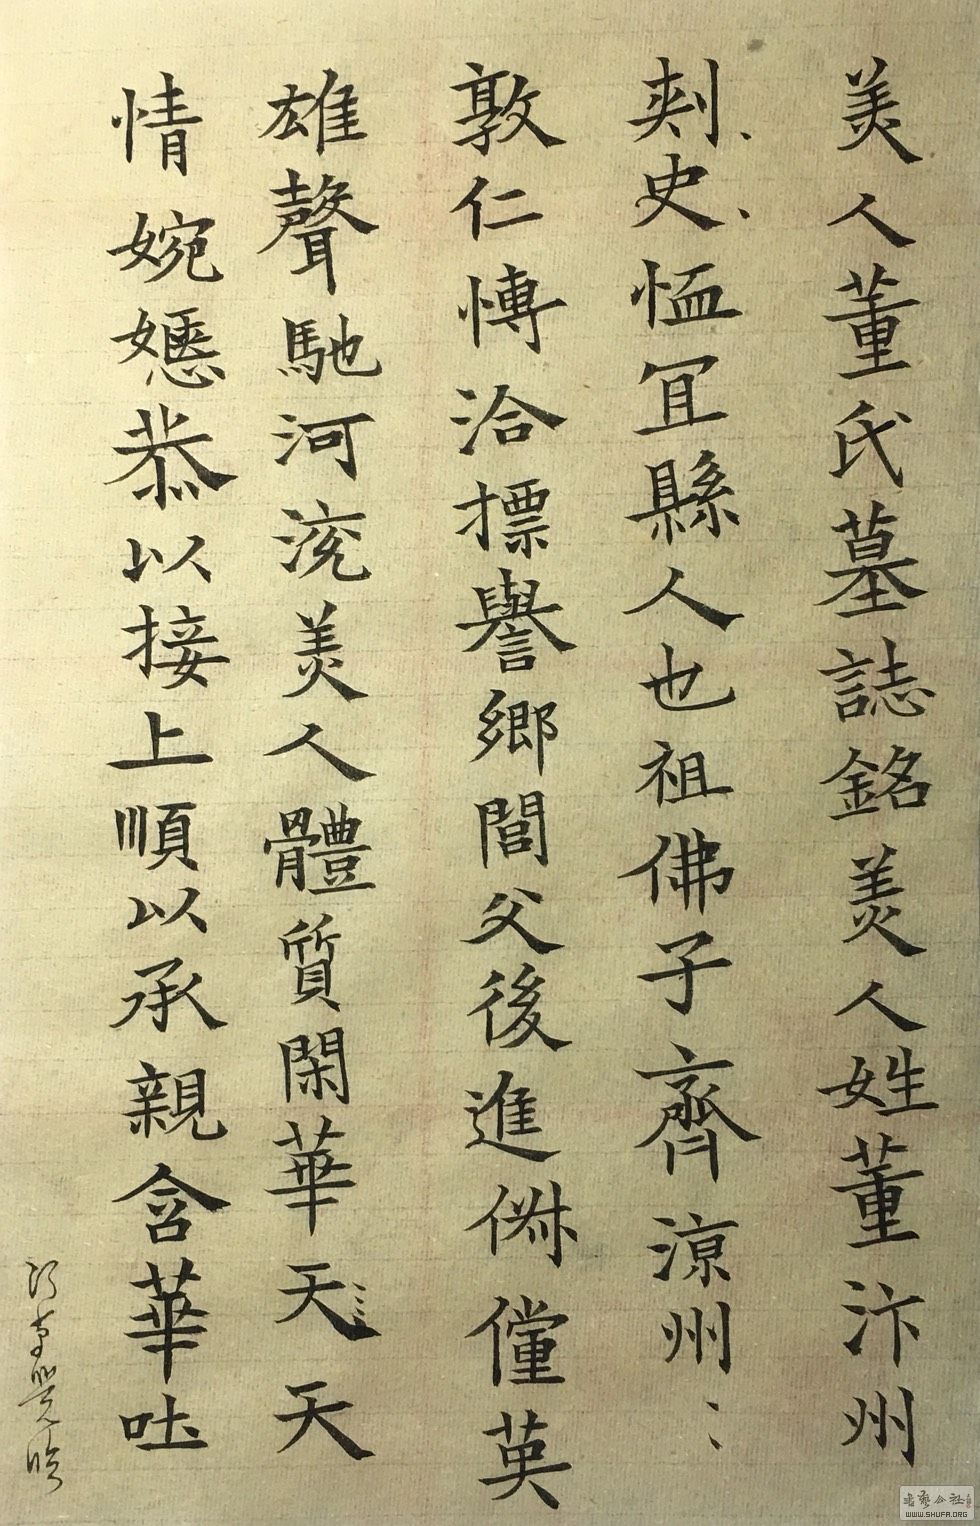 美人董氏墓誌銘美人姓董汴州
刺史恤冝縣人也祖佛子齊涼州
敦仁愽洽摽譽鄉閭父後進俶儻英
雄聲馳河渷美人體質閑華天天
情婉嫕恭以接上順以承親含華吐
WWW.SHUFA.ORG